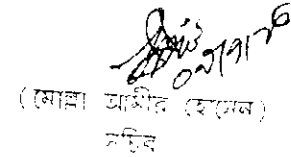 (মোল্লা আমীর হোসেন)
সচিব